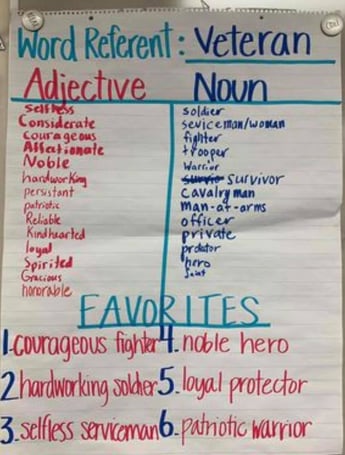 Word Referent: Veteran
Adjective
Selfless
Considerate
Courageous
Affectionate
Noble
hardworking
persistant
patriotic
Reliable
Kindhearted
loyal
Spirited
Gracious
honorable
Noun
soldier
seviceman/woman
fighter
trooper
Warrior
Survivor
Cavalry man
man-at-arms
officer
private
hero
FAVORITES
1.courageous fighter
2 hardworking soldier
3. selfless serviceman
4. noble hero
5. loyal protector
6. patriotic warrior